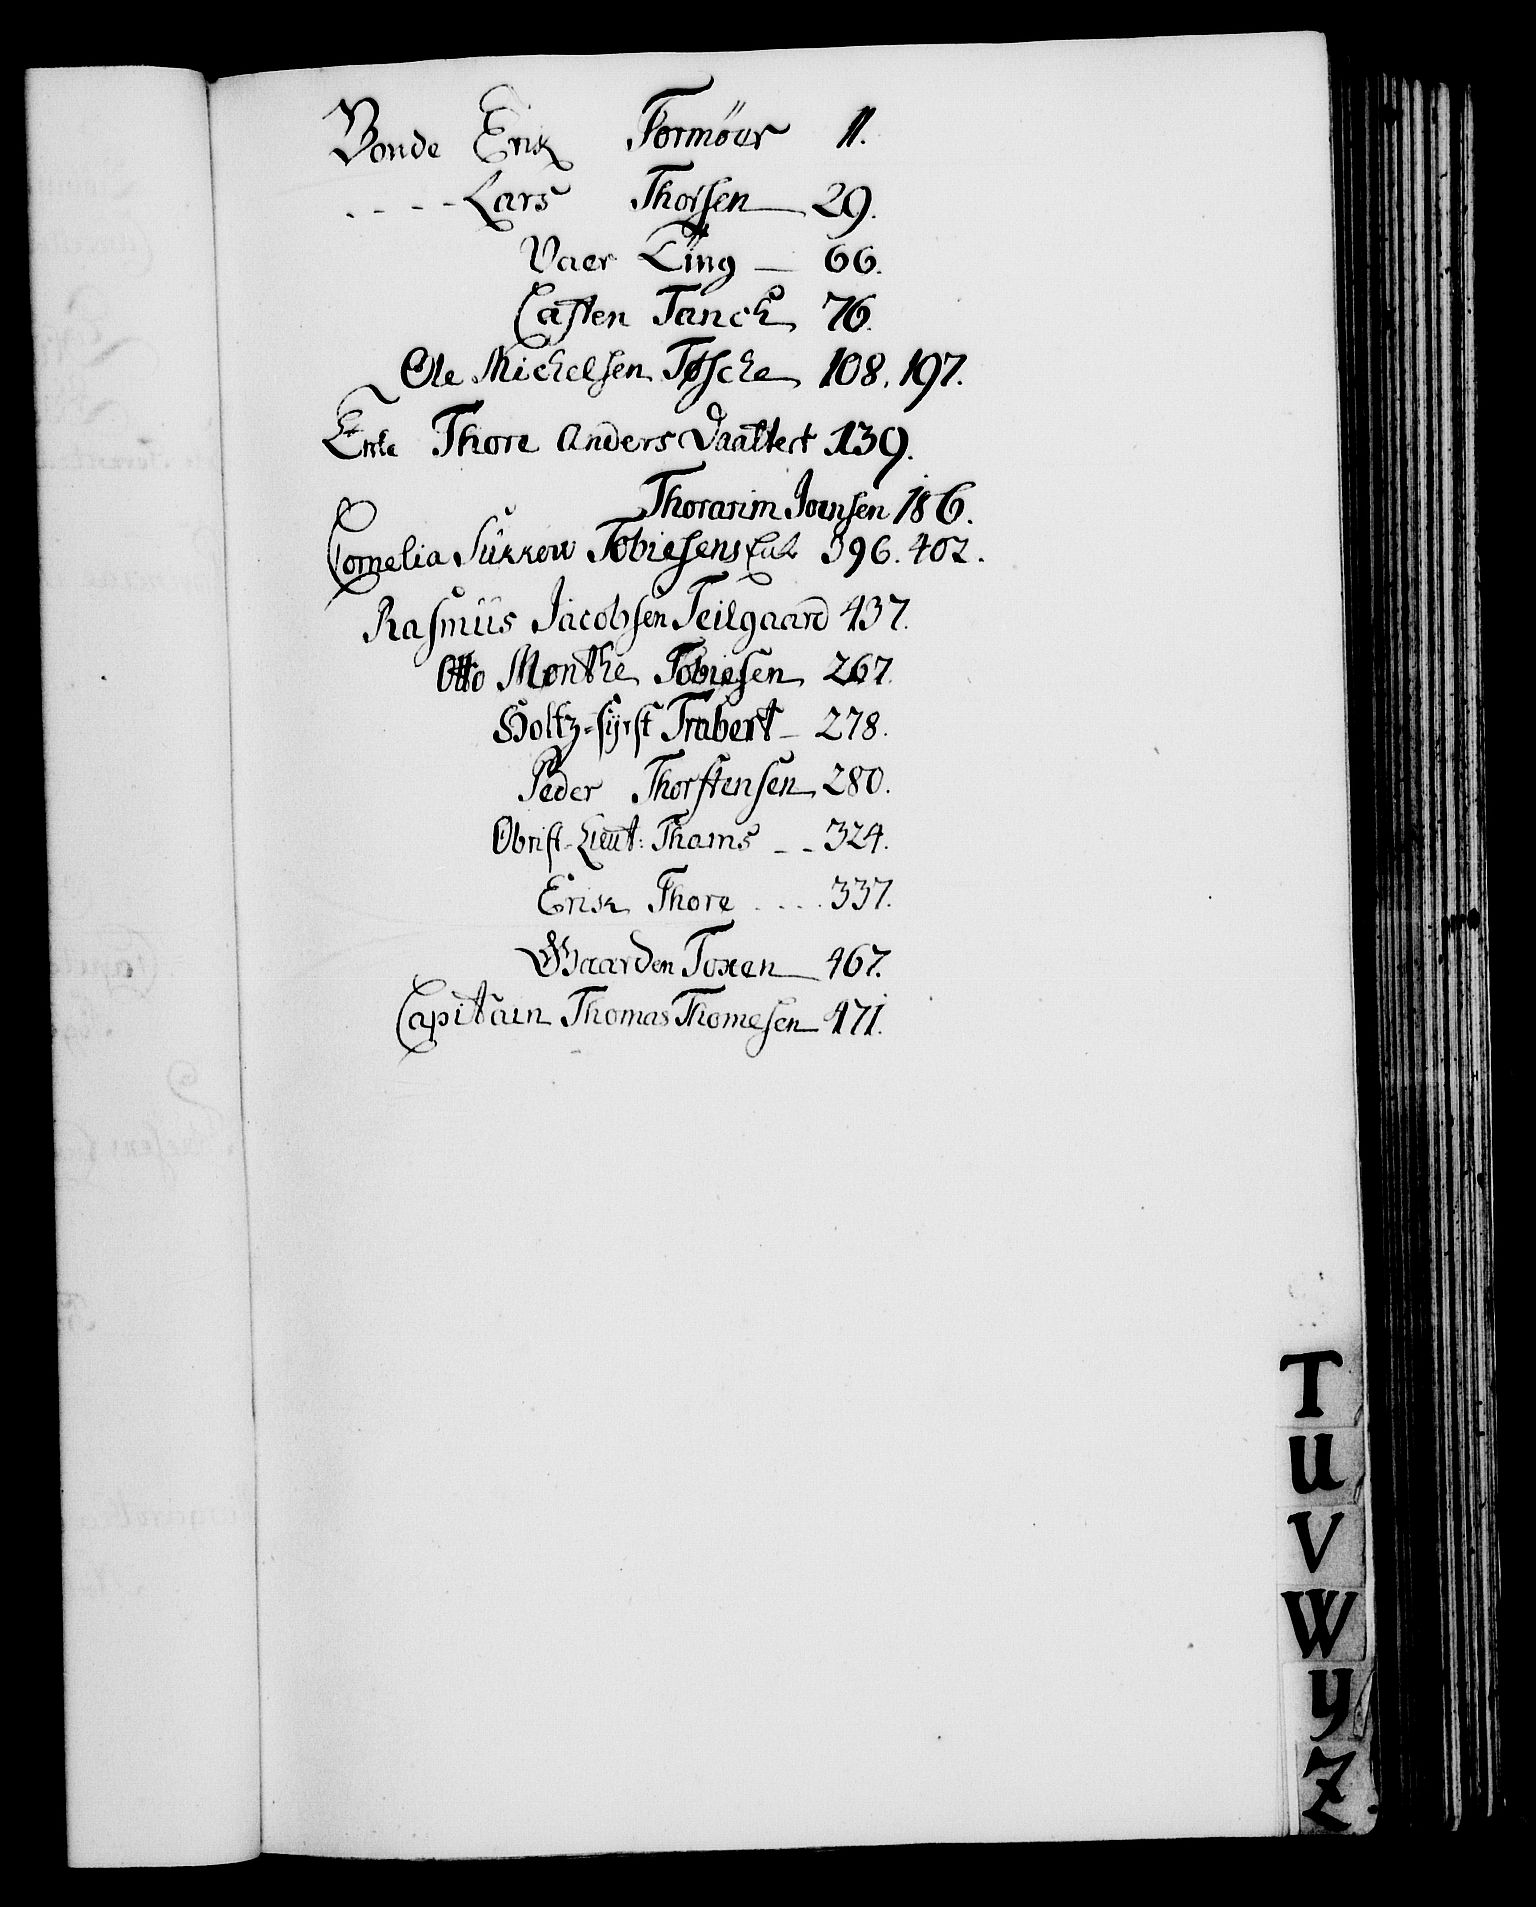 Bonde Erik Tormöer 11.
- - - - Lars Thorsen 29.
Vaer Ting — 66.
Casten Tanck 76.
Ole Michelsen Tøsche 108. 197.
Thore Anders Daatter 139.
Thorarim Joensen 186.
Cornelia Sukkow Tobiesens 396. 402.
Rasmus Jacobsen Teilgaard 437.
Otto Monthe Tobiesen 267.
Holtz-fyrst Trabert - 278.
Peder Thorstensen 280.
Obrist-Lieut: Thams - - 324.
Erik Thore . . . . 337.
Gaarden Toxen 467.
Capitain Thomas Thomesen 471.
T
U
V
W
Y
Z